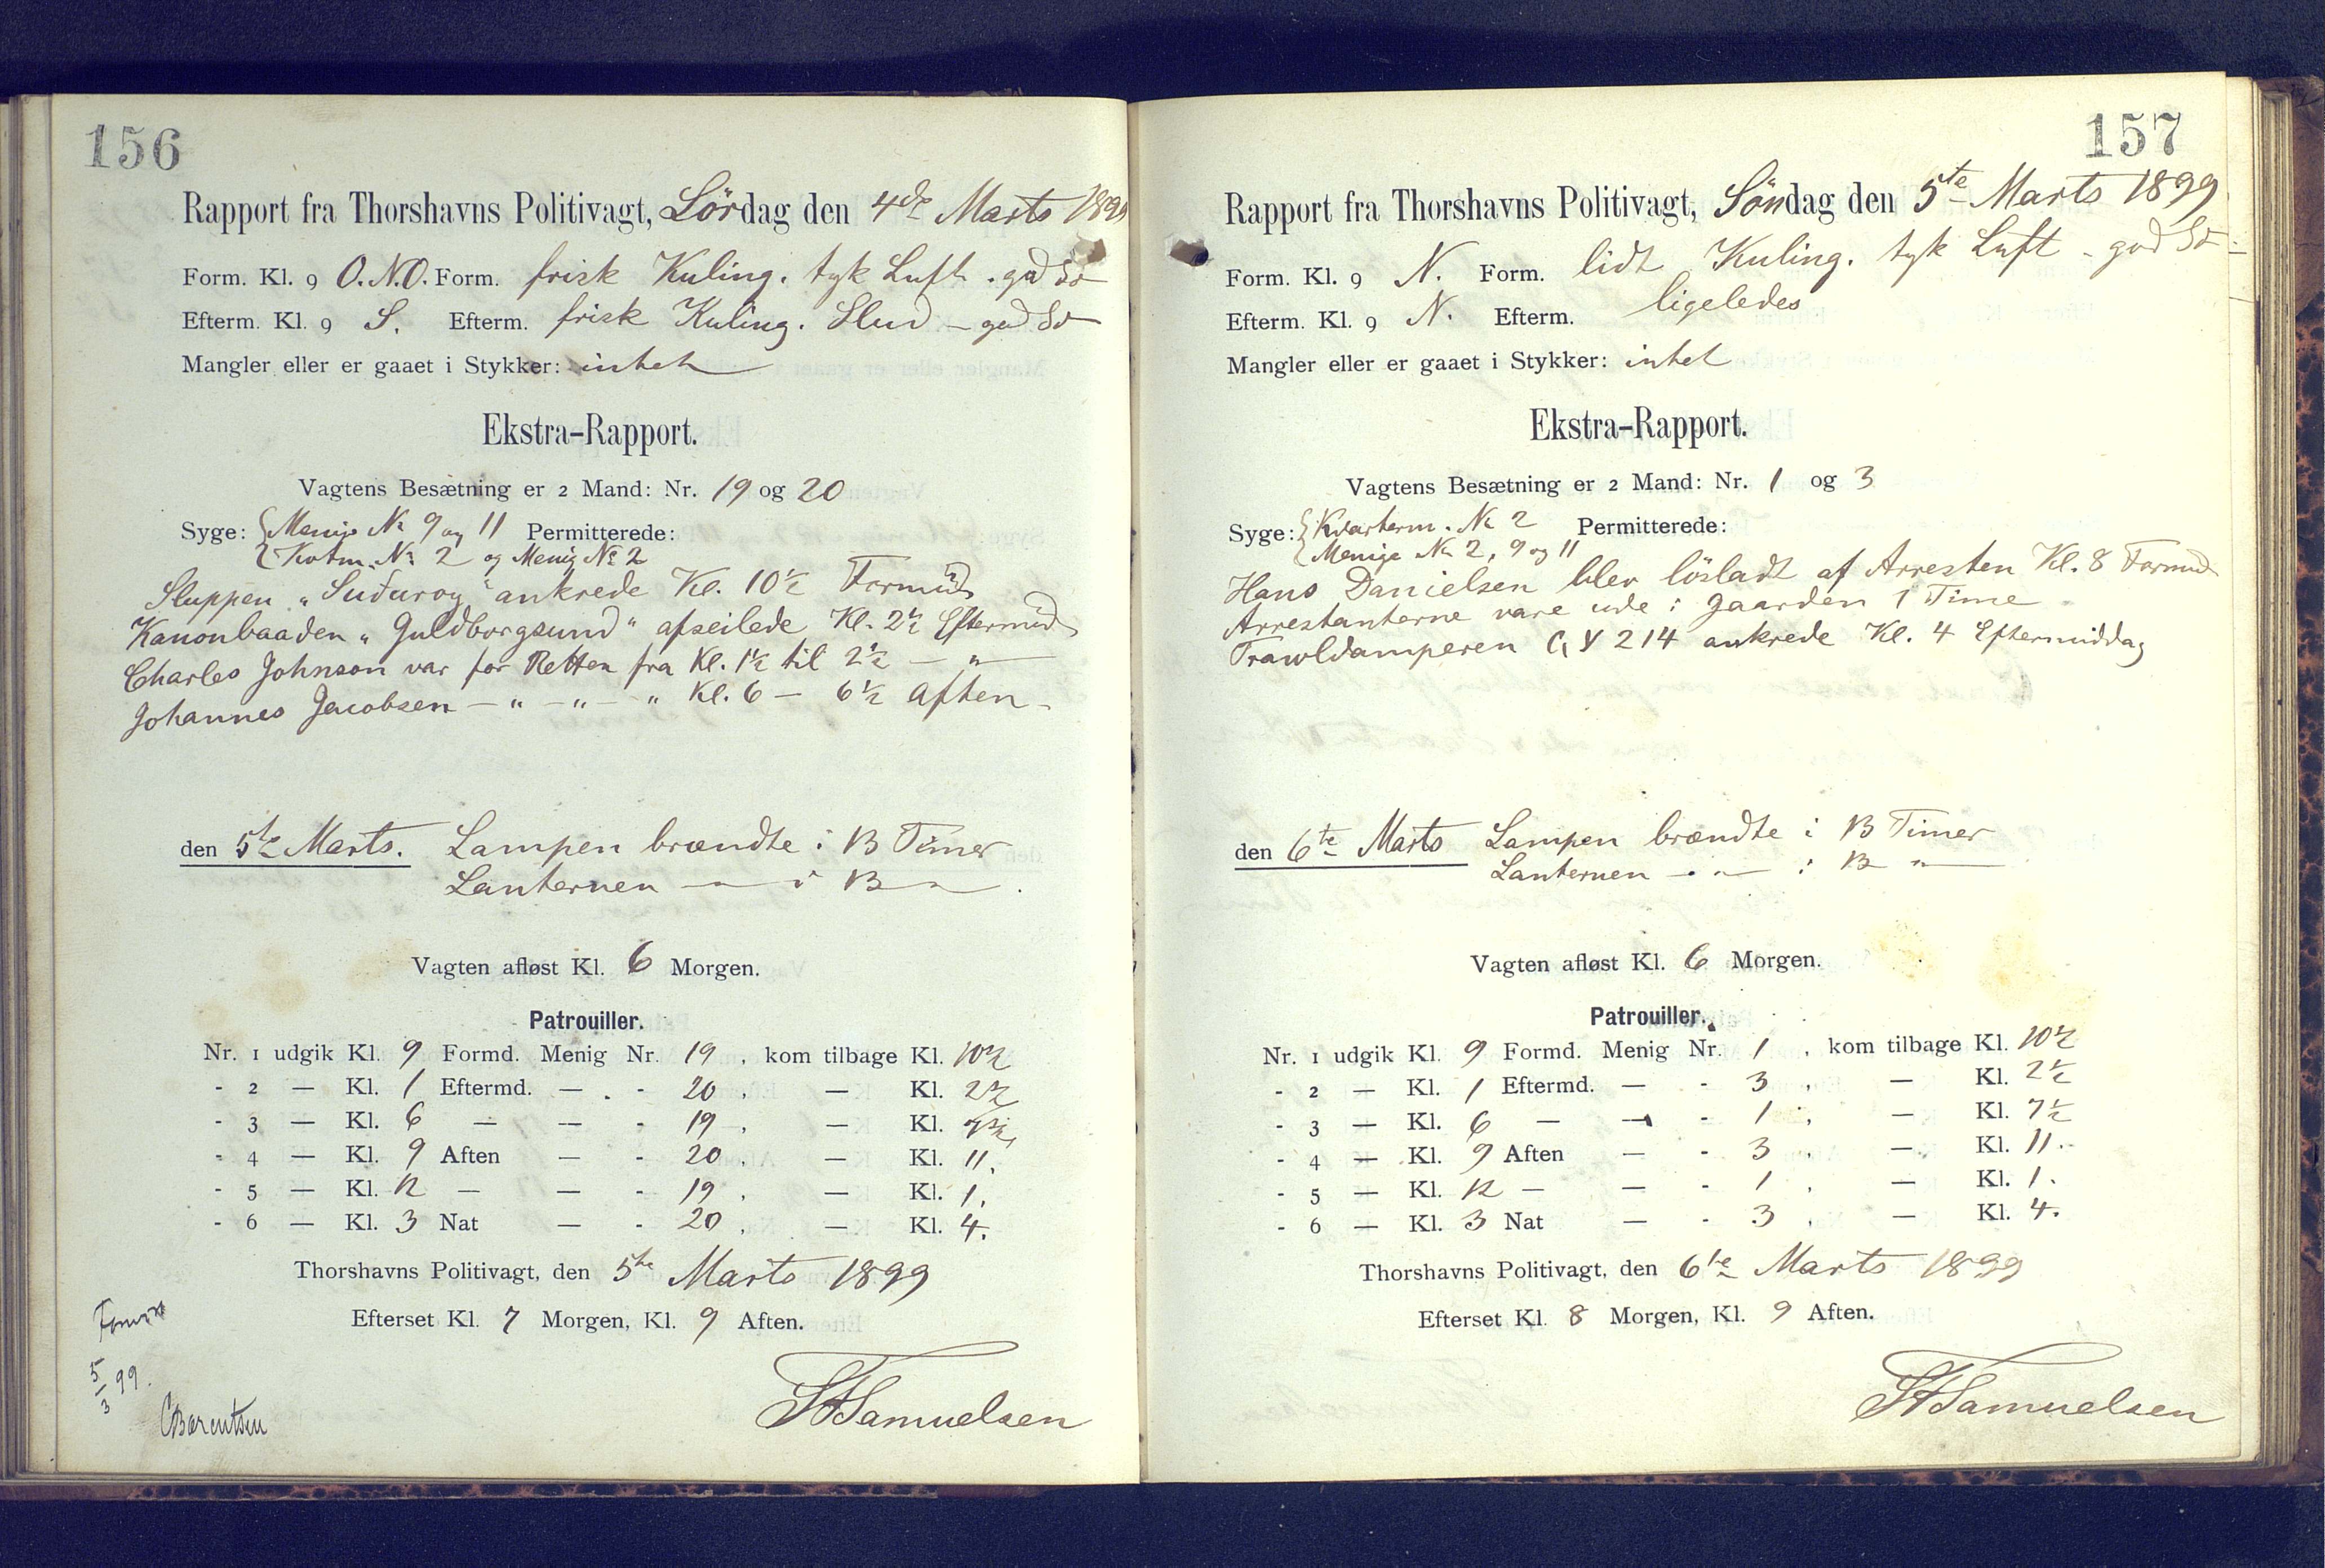 156
Rapport fra Thorshavns Politivagt, Lördag den 4de Marts 1899
Form. Kl. 9 O.N.O. Form. frisk Kuling. tyk Luft. god Sö
Efterm. Kl. 9 S. Efterm. frisk Kuling. Slud - god Sö
Mangler eller er gaaet i Stykker: intet
Ekstra-Rapport.
Vagtens Besætning er 2 Mand: Nr. 19 og 20
Syge: { Menige No 9 og 11 Permitterede:
Kvtm. No 2 og Menig No 2
Sluppen "Suduroy" ankrede Kl. 10½ Formid
Kanonbaaden "Guldborgsund" afseilede Kl. 2½ Eftermid
Charles Johnson var for Retten fra Kl. 1½ til 2½ — " —
Johannes Jacobsen — " — " — " Kl. 6 — 6½ Aften -
den 5te Marts. Lampen brændte i 13 Timer
Lanternen — " — i 13 — " —.
Vagten afløst Kl. 6 Morgen.
Patrouiller.
Nr. 1 udgik Kl. 9 Formd. Menig Nr. 19, kom tilbage Kl. 10½
- 2 — Kl. 1 Eftermd. — - 20, — Kl. 2½
- 3 — Kl. 6 — — - 19, — Kl. 7½
- 4 — Kl. 9 Aften — - 20, — Kl. 11.
- 5 — Kl. 12 — — - 19, — Kl. 1.
- 6 — Kl. 3 Nat — - 20, — Kl. 4.
Thorshavns Politivagt, den 5te Marts 1899
Efterset Kl. 7 Morgen, Kl. 9 Aften.
5/3 99.
CBærentsen
Samuelsen
157
Rapport fra Thorshavns Politivagt, Söndag den 5te Marts 1899
Form. Kl. 9 N. Form. lidt Kuling. tyk Luft - god Sö
Efterm. Kl. 9 N. Efterm. ligeledes
Mangler eller er gaaet i Stykker: intet
Ekstra-Rapport.
Vagtens Besætning er 2 Mand: Nr. 1 og 3
Syge: { Kvarterm. No 2 Permitterede:
Menige No 2, 9 og 11
Hans Danielsen blev lösladt af Arresten Kl. 8 Formid
Arrestanterne vare ude i Gaarden 1 Time
Trawldamperen G Y 214 ankrede Kl. 4 Eftermiddag
den 6te Marts Lampen brændte i 13 Timer
Lanternen — " — i 13 — " —
Vagten afløst Kl. 6 Morgen.
Patrouiller.
Nr. 1 udgik Kl. 9 Formd. Menig Nr. 1, kom tilbage Kl. 10½
- 2 — Kl. 1 Eftermd. — - 3, — Kl. 2½
- 3 — Kl. 6 — — - 1, — Kl. 7½
- 4 — Kl. 9 Aften — - 3, — Kl. 11.
- 5 — Kl. 12 — — - 1, — Kl. 1.
- 6 — Kl. 3 Nat — - 3, — Kl. 4.
Thorshavns Politivagt, den 6te Marts 1899
Efterset Kl. 8 Morgen, Kl. 9 Aften.
Samuelsen